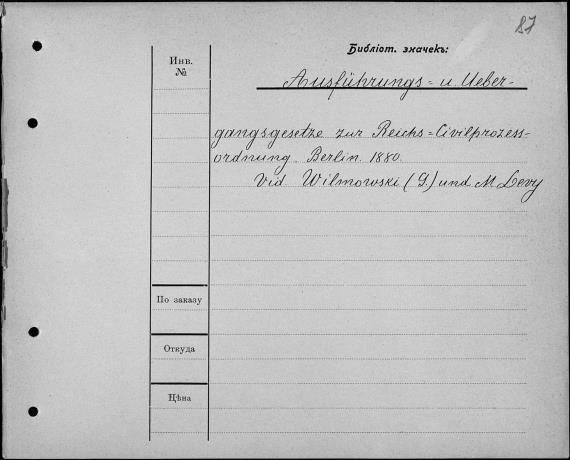 87
Библіот. значекъ:
Инв.
№
Ausführungs = u. Ueber-
gangsgesetze zur Reichs=Civilprozess-
ordnung. Berlin. 1880.
Vid. Wilmowski (G.) und M Levy
По заказу
Откуда
Цѣна